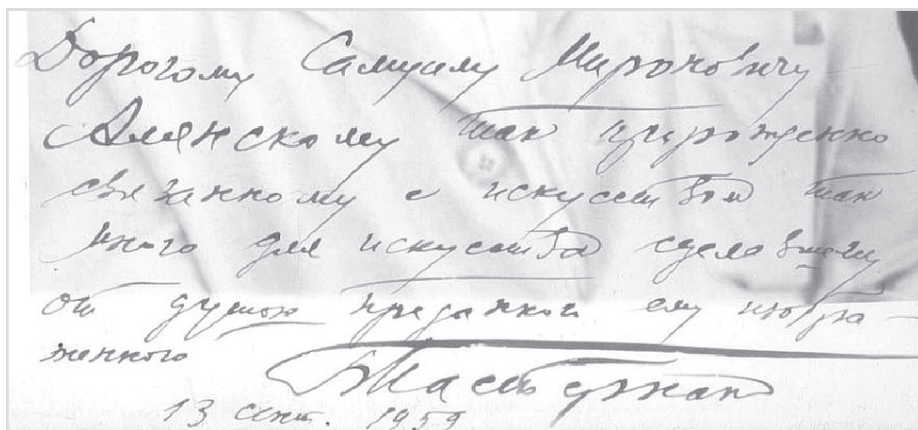 Дорогому Самуилу Мироновичу
Алянскому так прирожденно
связанному с искусством так
много для искусства сделавшему
от душою преданного ему изобра-
женного
БПастернак
13 сент. 1959